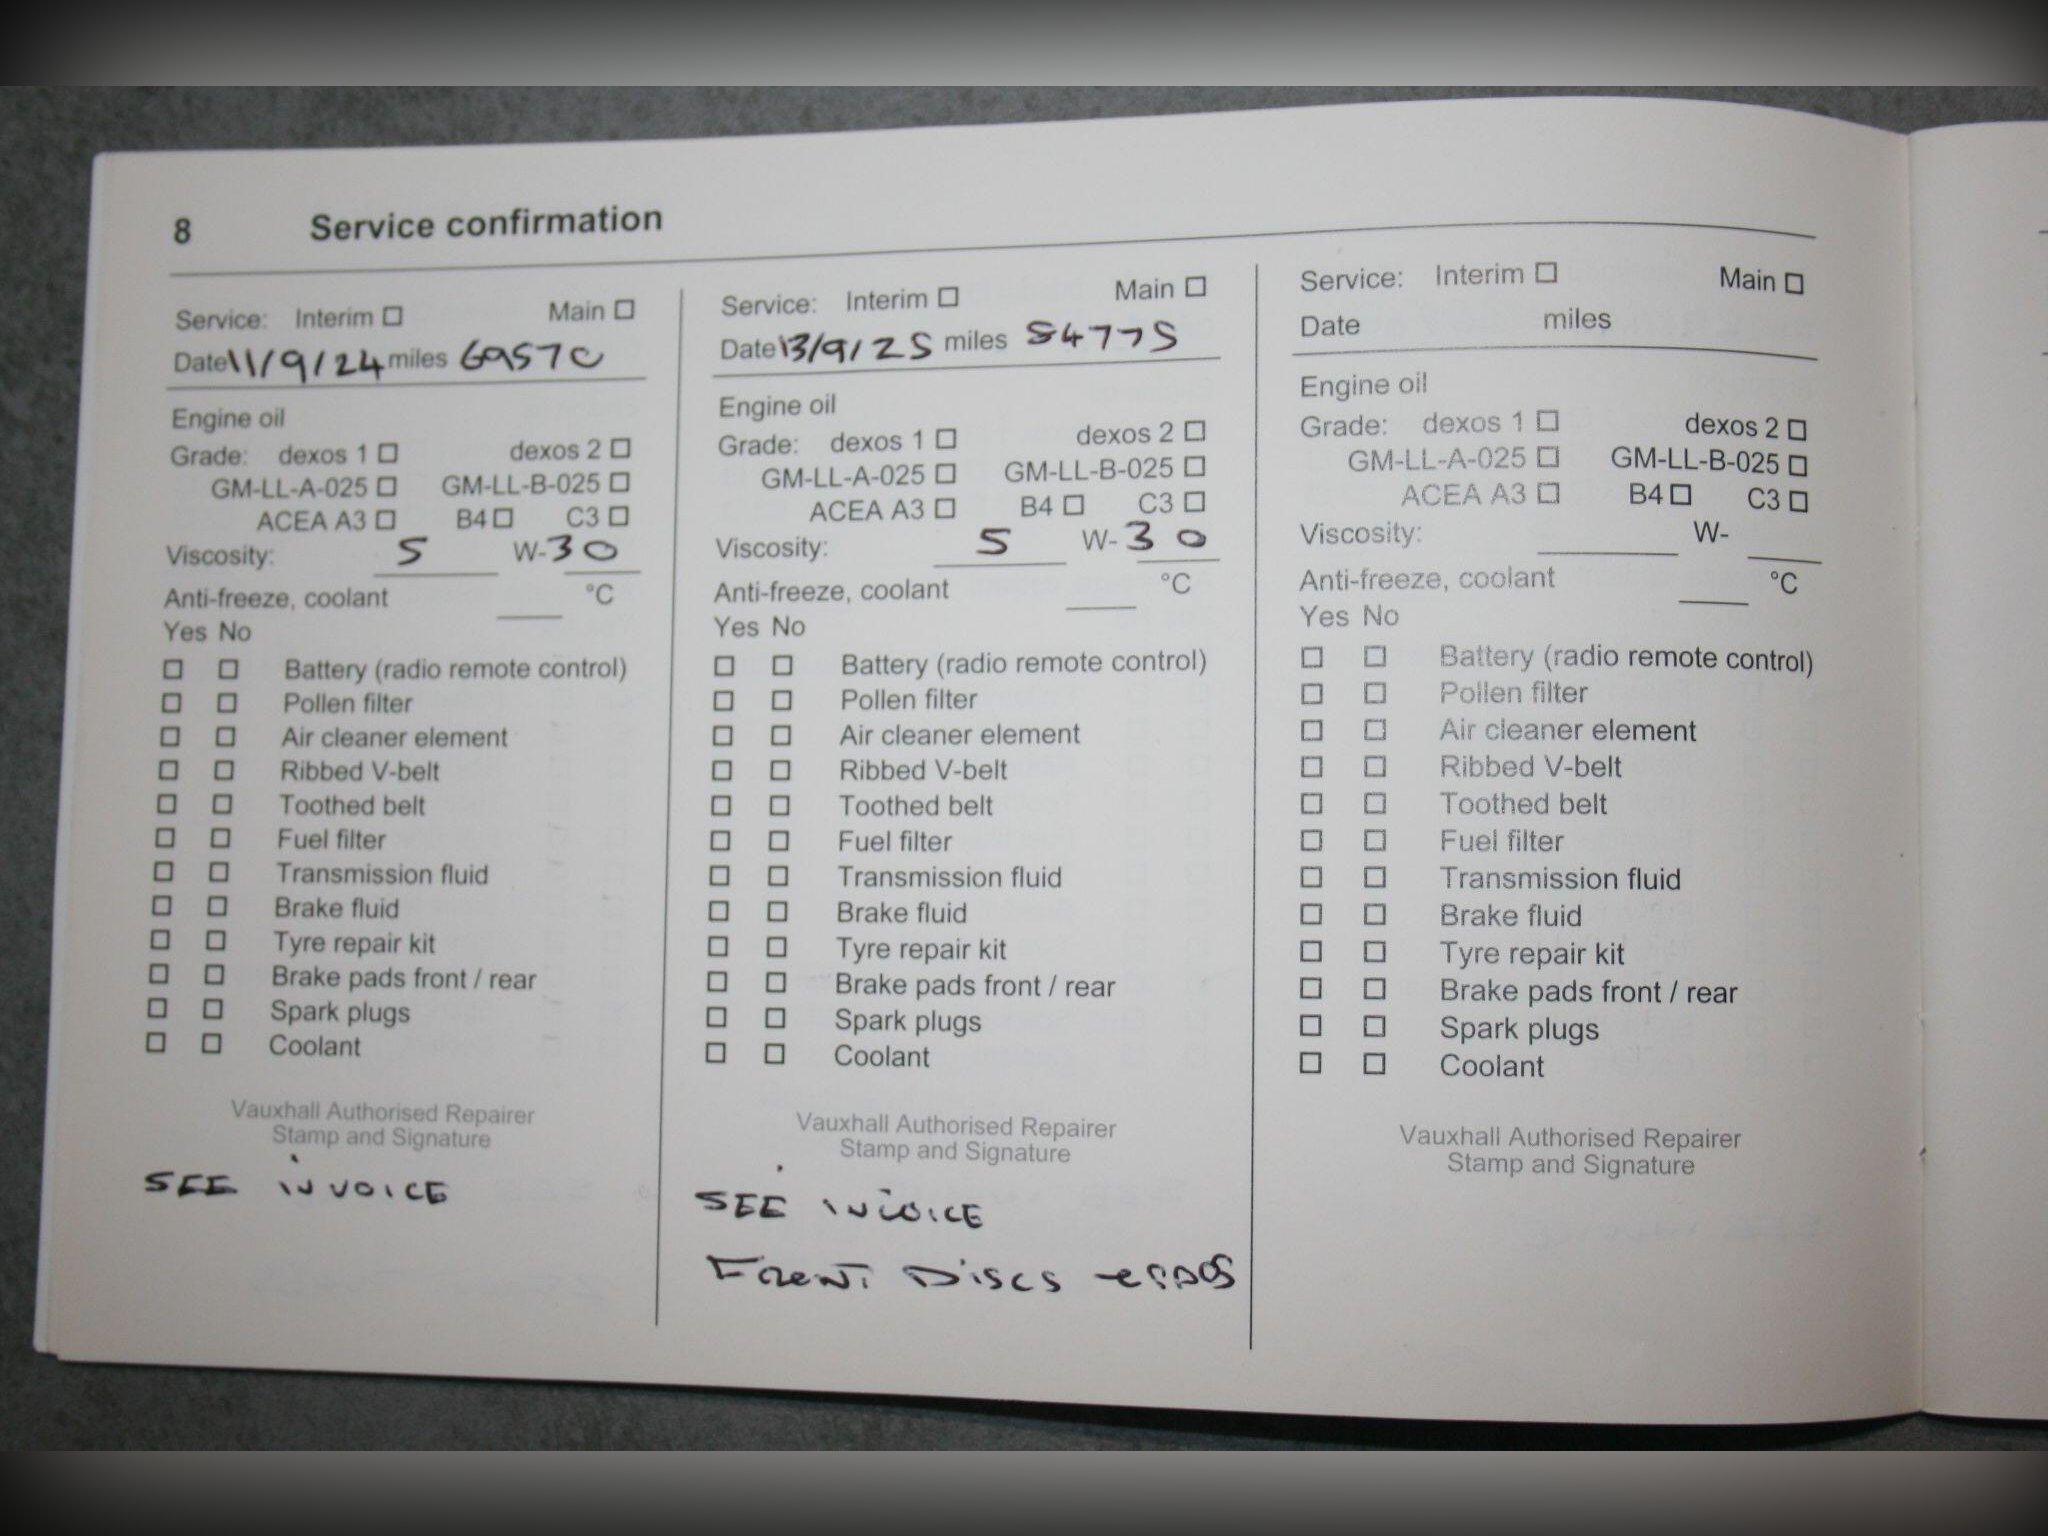 8 Service confirmation
Service: Interim □ Main □
Date 11/9/24 miles 69570
Engine oil
Grade: dexos 1 □ dexos 2 □
GM-LL-A-025 □ GM-LL-B-025 □
ACEA A3 □ B4 □ C3 □
Viscosity: 5 W-30
Anti-freeze, coolant ____ °C
Yes No
□ □ Battery (radio remote control)
□ □ Pollen filter
□ □ Air cleaner element
□ □ Ribbed V-belt
□ □ Toothed belt
□ □ Fuel filter
□ □ Transmission fluid
□ □ Brake fluid
□ □ Tyre repair kit
□ □ Brake pads front / rear
□ □ Spark plugs
□ □ Coolant
Vauxhall Authorised Repairer
Stamp and Signature
SEE INVOICE
Service: Interim □ Main □
Date 13/9/25 miles 84775
Engine oil
Grade: dexos 1 □ dexos 2 □
GM-LL-A-025 □ GM-LL-B-025 □
ACEA A3 □ B4 □ C3 □
Viscosity: 5 W-30
Anti-freeze, coolant ____ °C
Yes No
□ □ Battery (radio remote control)
□ □ Pollen filter
□ □ Air cleaner element
□ □ Ribbed V-belt
□ □ Toothed belt
□ □ Fuel filter
□ □ Transmission fluid
□ □ Brake fluid
□ □ Tyre repair kit
□ □ Brake pads front / rear
□ □ Spark plugs
□ □ Coolant
Vauxhall Authorised Repairer
Stamp and Signature
SEE INVOICE
FRONT DISCS
Service: Interim □ Main □
Date miles
Engine oil
Grade: dexos 1 □ dexos 2 □
GM-LL-A-025 □ GM-LL-B-025 □
ACEA A3 □ B4 □ C3 □
Viscosity: ____ W- ____
Anti-freeze, coolant ____ °C
Yes No
□ □ Battery (radio remote control)
□ □ Pollen filter
□ □ Air cleaner element
□ □ Ribbed V-belt
□ □ Toothed belt
□ □ Fuel filter
□ □ Transmission fluid
□ □ Brake fluid
□ □ Tyre repair kit
□ □ Brake pads front / rear
□ □ Spark plugs
□ □ Coolant
Vauxhall Authorised Repairer
Stamp and Signature